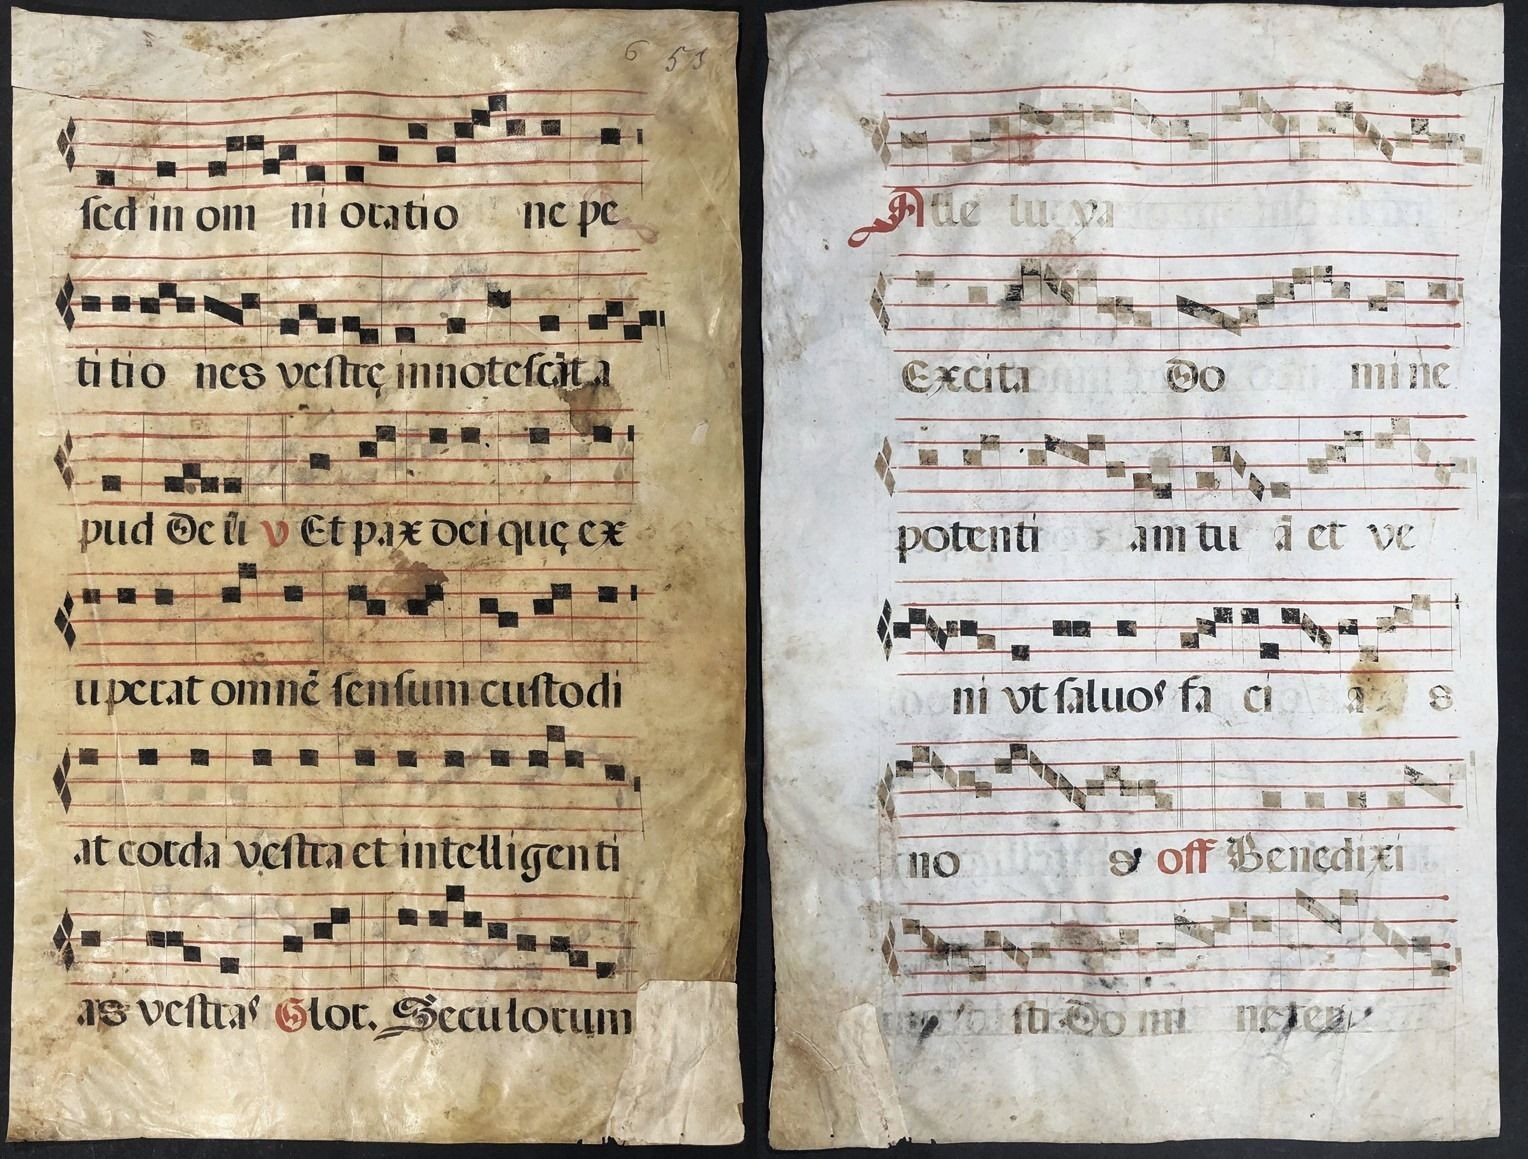 6 53
sed in om ni oratio ne pe
ti tio nes vestrę innotescāt a
pud Deū v Et pax dei quę ex
uperat omnē sensum custodi
at corda vestra et intelligenti
as vestras Glor. Seculorum
Alle lu ya
Excita Do mine
potenti am tu ā et ve
ni vt saluos fa ci a s
no s off Benedixi
sti Do mi ne ter